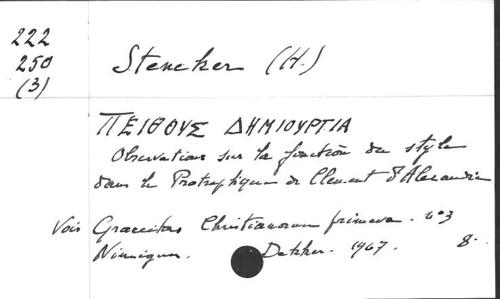 222
250
(3)
Steneker (H.)
ΠΕΙΘΟΥΣ ΔΗΜΙΟΥΡΓΙΑ
Observations sur la fonction du style
dans le Protreptique de Clement d'Alexandrie
Vois Graecitas Christianorum primaeva. n°3
Nimègue. Dekker. 1967. 8.